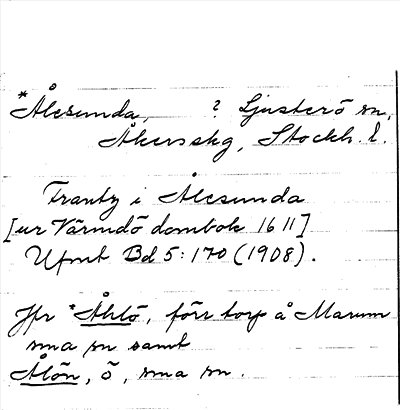 *Ålesunda, ? Ljusterö sn,
Åkers skg, Stockh. l.
Frantz i Ålesunda
[ur Värmdö dombok 1611]
Ufmt Bd 5: 170 (1908).
Jfr *Åhlö, förr torp å Marum
sma sn samt
Ålön, ö, sma sn.